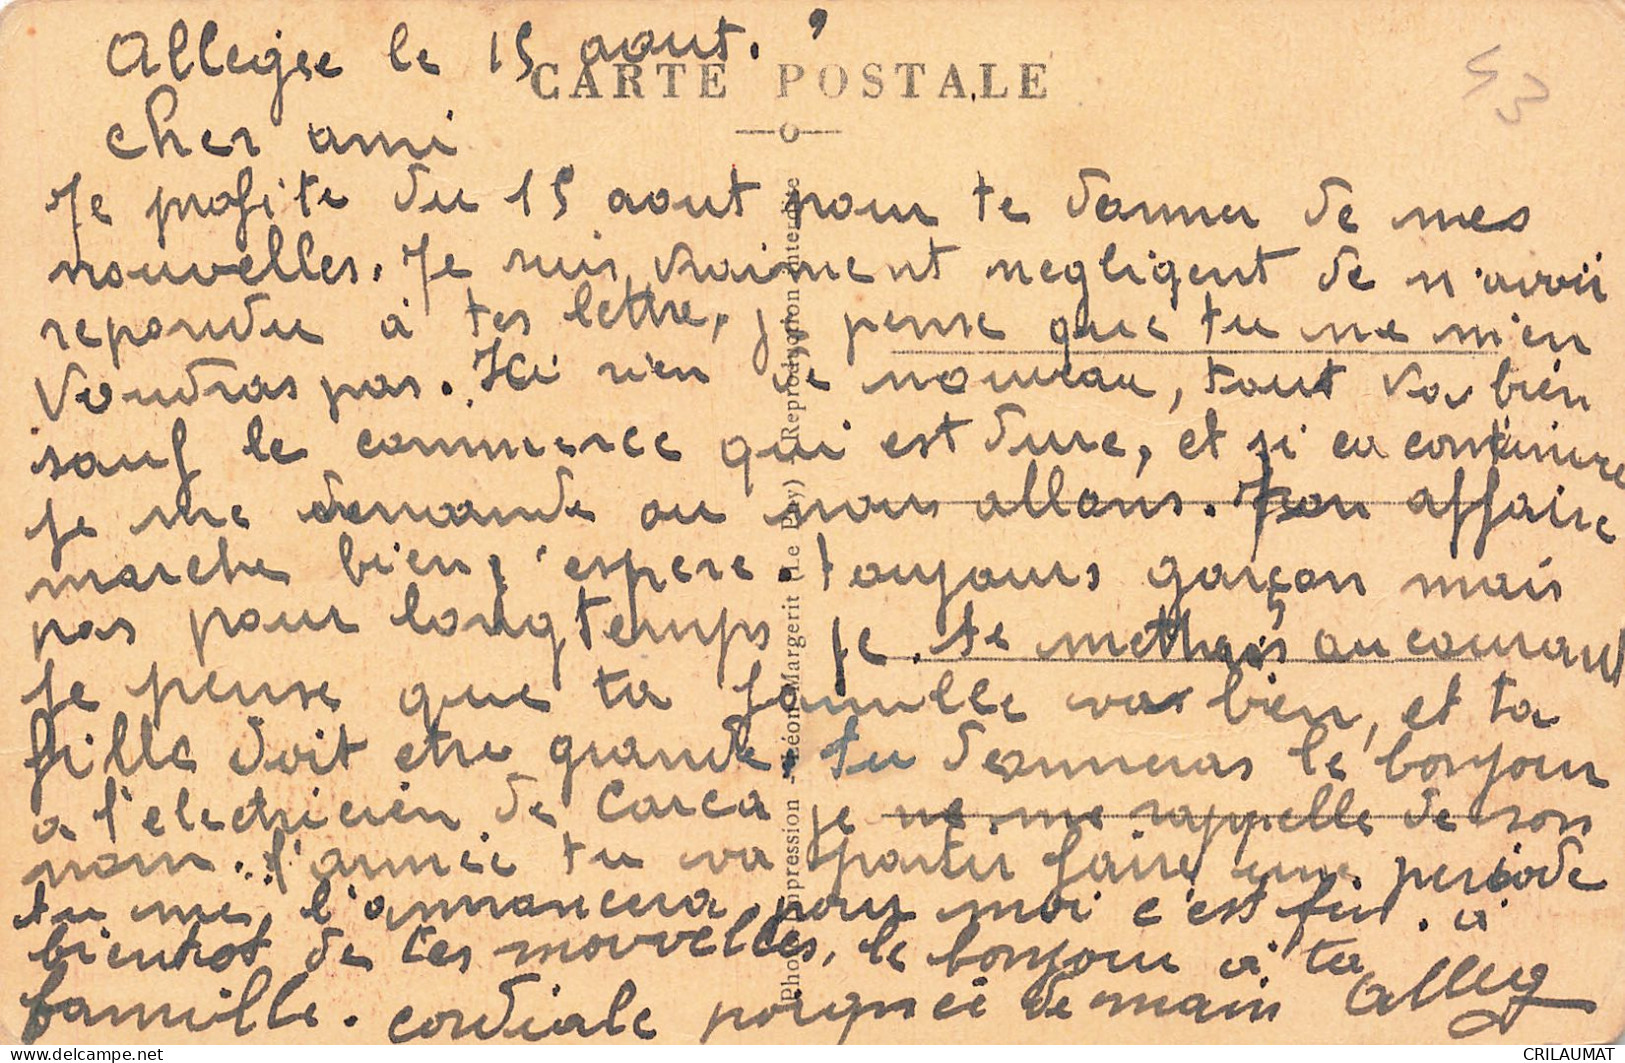 Allegre le 15 aout.
CARTE POSTALE
53
cher ami
Je profite du 15 aout pour te donner de mes
nouvelles. Je suis vraiment negligent de n'avoir
repondu à tes lettre, je pense que tu ne m'en
voudras pas. Ici rien de nouveau, tout va bien
sauf le commerce qui est dure, et si ca continure
je me demande ou nous allons. Ton affaire
marche bien j'espere. toujours garçon mais
pas pour longtemps je te mettrais au courant
je pense que ta famille vas bien, et ta
fille doit etre grande, tu donneras le bonjour
a l'electricien de Carca je ne me rappelle de son
nom. l'année tu va partir faire une periode
tu me l'annoncera, pour moi c'est fini. a
bientot de tes nouvelles, le bonjour à ta
famille. cordiale poignée de main Alleg
Photo-Impression - Léon Margerit (Le Puy) (Reproduction interdite
CRILAUMAT